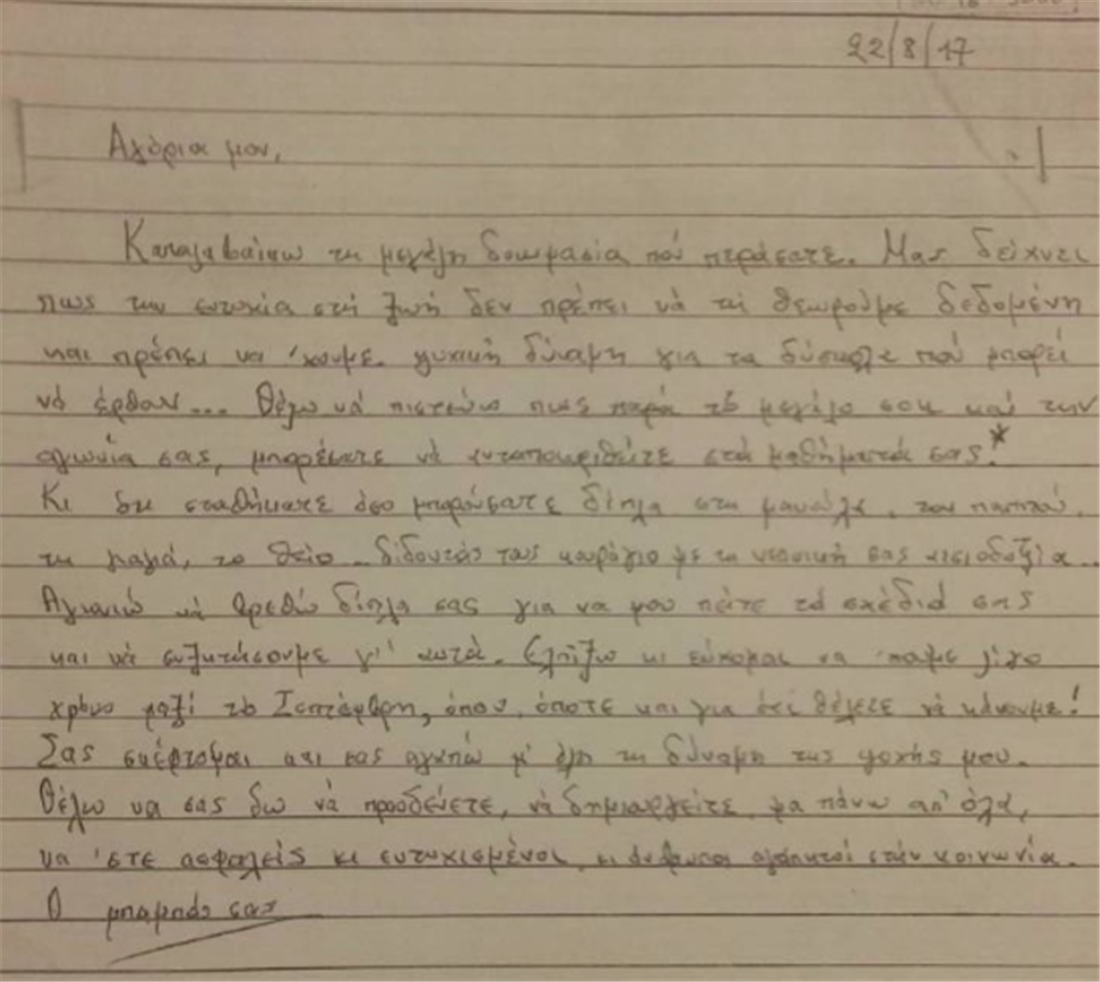 22/8/17
Αγόρια μου,
Καταλαβαίνω τη μεγάλη δοκιμασία πού περάσατε. Μας δείχνει
πως την ευτυχία στή ζωή δεν πρέπει νά τη θεωρούμε δεδομένη
και πρέπει να 'χουμε ψυχική δύναμη για τα δύσκολα πού μπορεί
νά έρθουν... Θέλω νά πιστεύω πως παρά τό μεγάλο σοκ καί την
αγωνία σας, μπορέσατε νά ανταποκριθείτε στά μαθήματά σας.*
Κι ότι σταθήκατε όσο μπορούσατε δίπλα στη μανούλα, τον παππού,
τη γιαγιά, το θείο... δίδοντάς τους κουράγιο με τη νεανική σας αισιοδοξία...
Αγωνιώ νά βρεθώ δίπλα σας για να μου πείτε τά σχέδιά σας
και νά συζητήσουμε γι' αυτά. Ελπίζω κι εύχομαι να 'παμε λίγο
χρόνο μαζί τό Σεπτέμβρη, όπου, όποτε και για ότι θέλετε νά κάνουμε!
Σας σκέφτομαι και σας αγαπώ μ' όλη τη δύναμη της ψυχής μου.
Θέλω να σας δω νά προοδεύετε, νά δημιουργείτε, μα πάνω απ' όλα,
να 'στε ασφαλείς κι ευτυχισμένοι, κι άνθρωποι αγαπητοί στήν κοινωνία.
Ο μπαμπάς σας